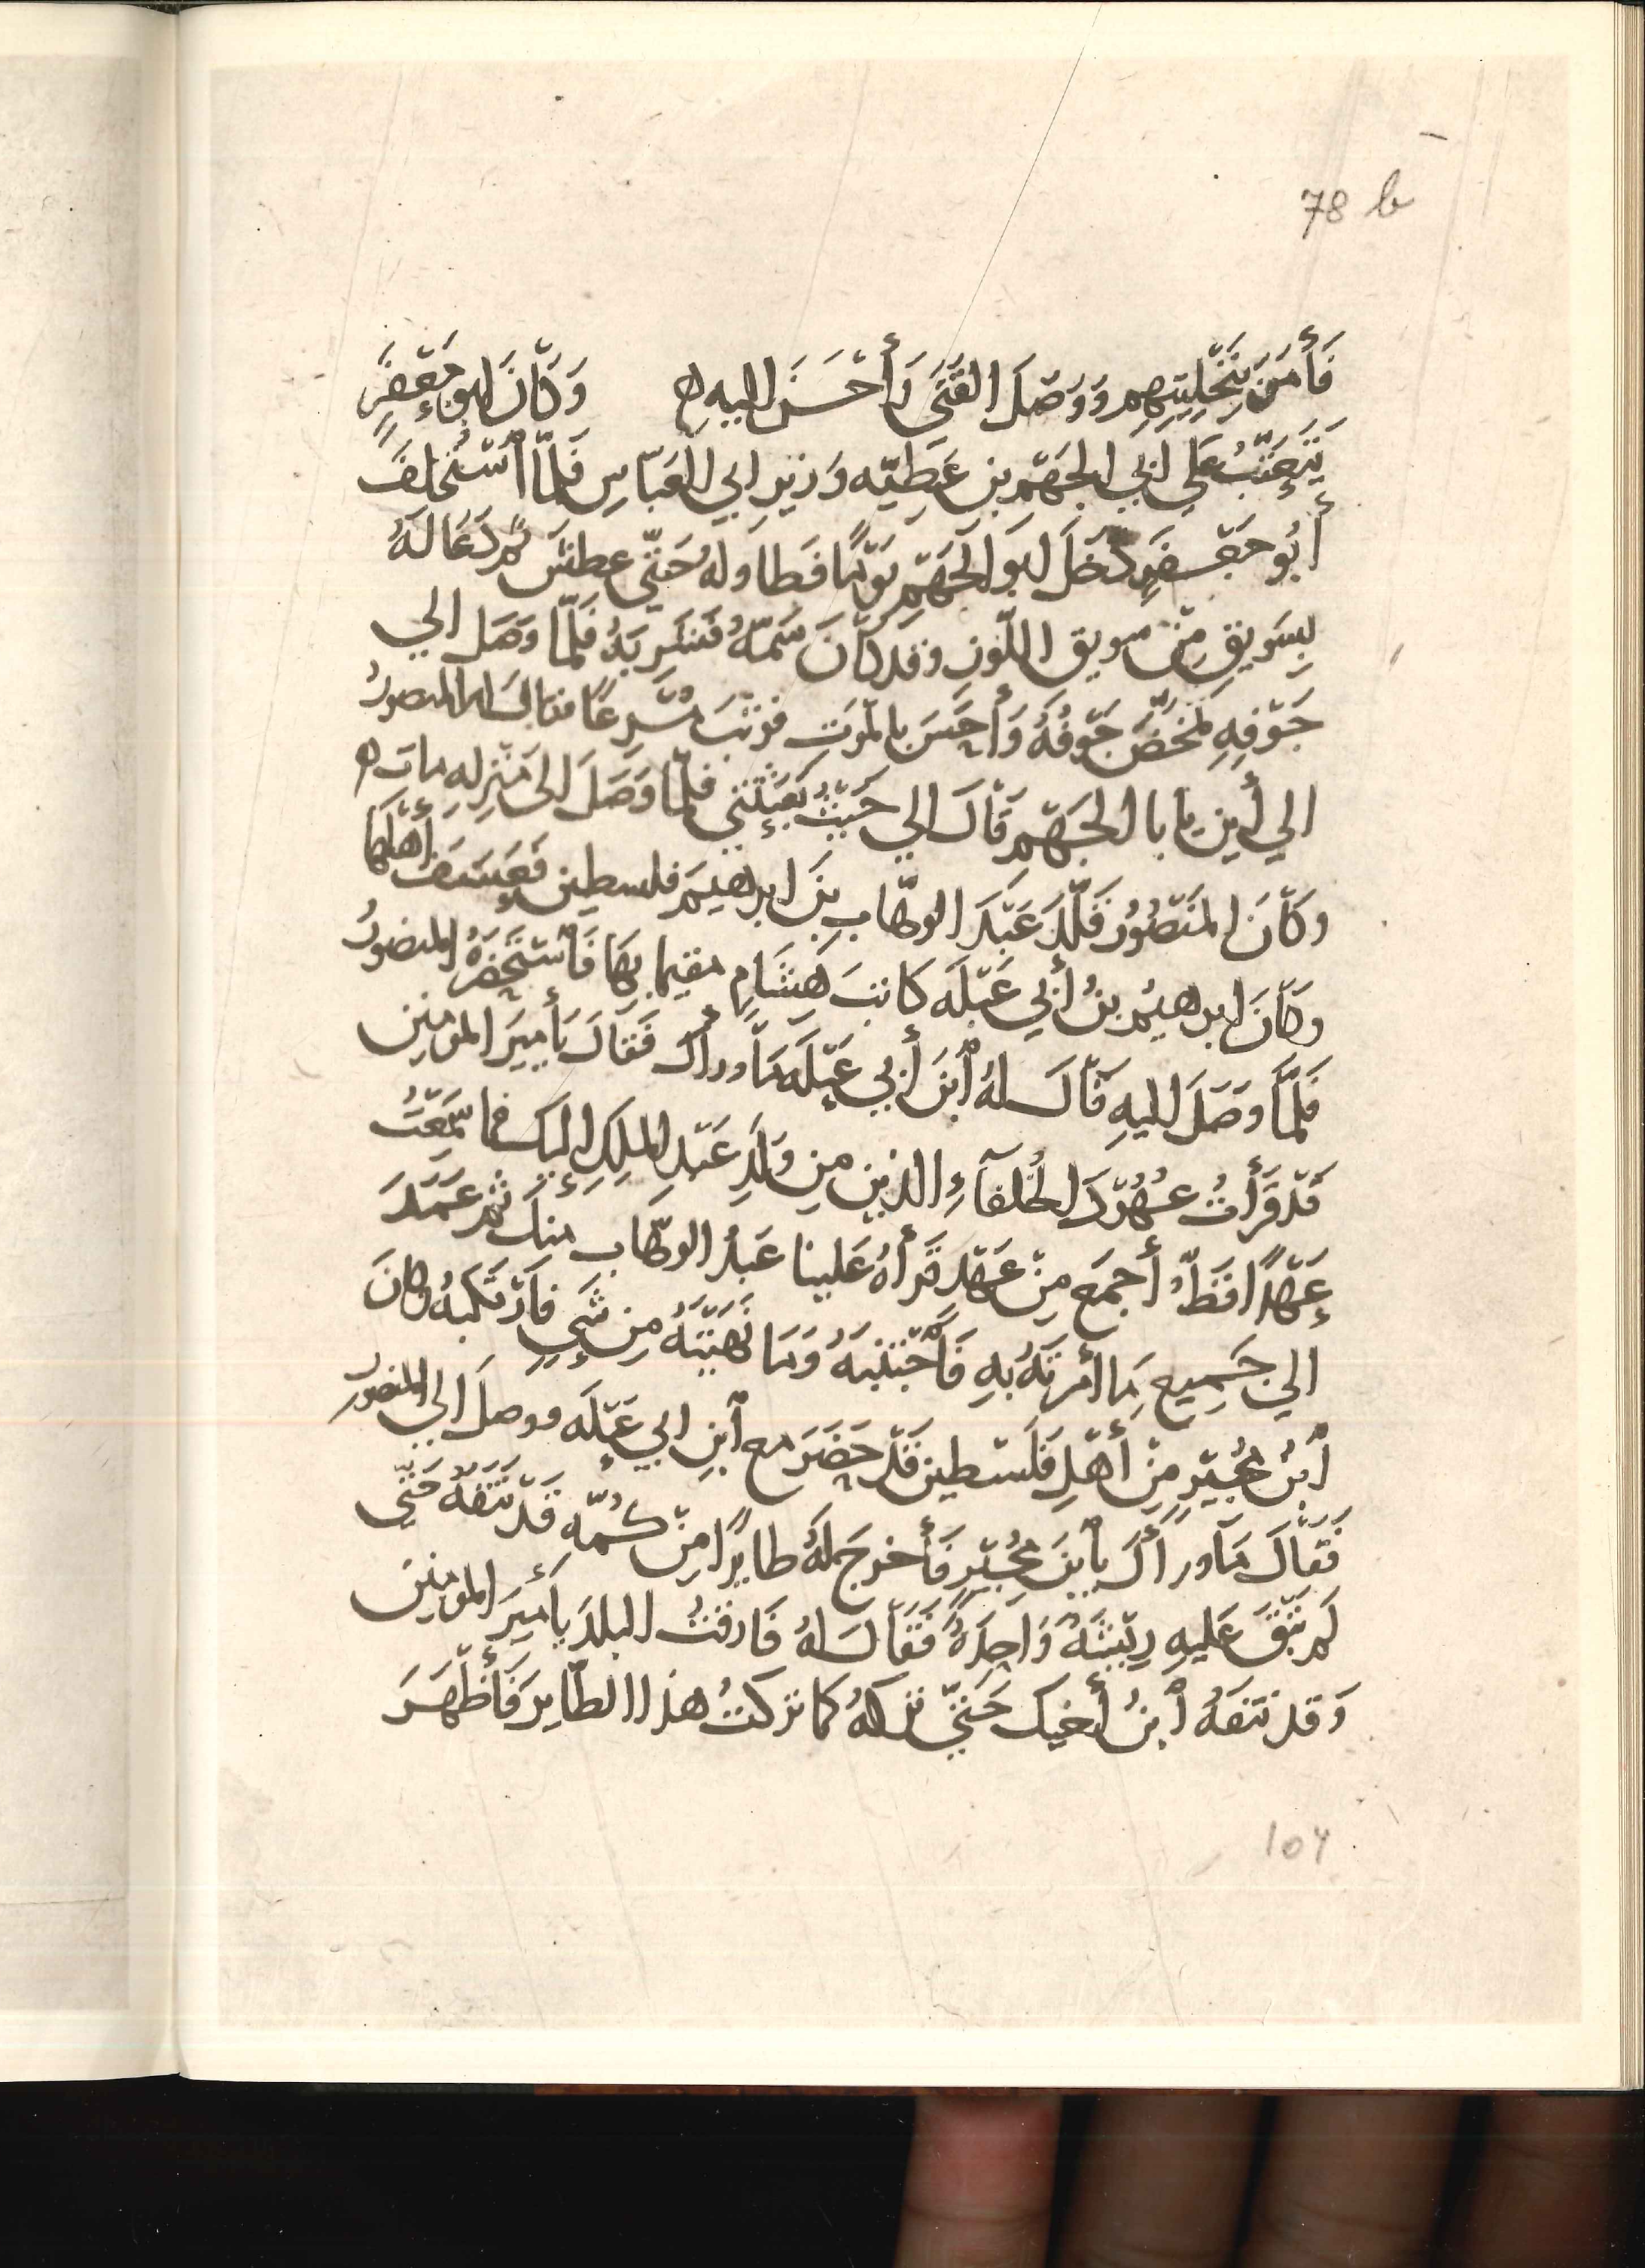 78 b
فَأَمَرَ بِتَخْلِيَتِهِم وَوَصَلَ الفَتَى وَأَحْسَنَ اليه ه وَكَانَ ابو جَعْفَرٍ
يَتَعَتَّبُ عَلى ابي الجَهْم بن عَطِيّه وَزيرِ ابي العَبّاسِ فَلَمّا اسْتُخلِفَ
أَبُو جَعْفَرٍ دَخَلَ ابو الجَهْمِ يَوْمًا فطاوله حَتّى عطش ثُم دَعَا لَهُ
بِسَويقٍ مِنْ سويق اللَّوز وقد كَانَ سَمّهُ فَشَرِبَهُ فَلَمّا وَصَل الي
جَوْفِهِ تمَخَّضَ جَوفُهُ وَأَحَسَ بالمَوتِ فوثَبَ مُسْرِعًا فقال له المنصورُ
الي أين يا با الجَهْمِ قَالَ الي حَيْثُ بَعَثْتَنِي فلمّا وَصَلَ الى مَنْزِلِهِ مات ه
وكَانَ المَنْصُورُ قَلَّدَ عَبْدَ الوهّاب بنَ ابرهيمَ فلسطين فَعَسَفَ أَهْلَهَا
وكَانَ ابرهيمُ بنُ أبي عَبْلَه كاتبَ هِشَامٍ مقيما بِهَا فَاسْتَحْضَرَهُ المنصورُ
فَلَمَّا وَصَلَ اليهِ قَالَ لهُ ابنَ أبي عَبْلَه مَا وراك فَقَالَ يَأَميرَ المومنين
قَدْ قَرَأتُ عُهُوْدَ الخُلَفَآءِ الذين من وَلَدِ عَبْدِ الملكِ إليك فما سَمِعْتُ
عَهْدًا قَطُّ أجمَع مِنْ عَهْدٍ قَرَأهُ عَلينا عَبدُ الوهّاب منك ثم عَمَدَ
الي جَمِيعِ مَا أمَرْتَهُ بِهِ فَاجْتَنَبَهُ وَمَا نَهَيْتَهُ مِن شَيٍ فارْتَكَبهُ وكانَ
ابنُ مُجَبّرٍ مِنْ أَهْلِ فَلَسْطين قَدْ حَضَرَ مع ابنِ ابي عَبْلَه ووصلَ الي المنصورِ
فَقَالَ مَا وراكَ يابنَ مُجَبّرٍ فَأَخرجَ لهُ طايرًا مِنْ كُمّه قَدْ نَتَفَهُ حَتّى
لَم تَبْقَ عَليهِ رِيْشَةٌ وَاحِدَةٌ فَقَالَ لهُ فَارقتُ البلدَ يا أَميرَ المومنين
وَقد نتفهُ ابنُ أخيك حَتّى تركهُ كما تركتُ هذا الطّايِرَ فَأَظْهَرَ
104